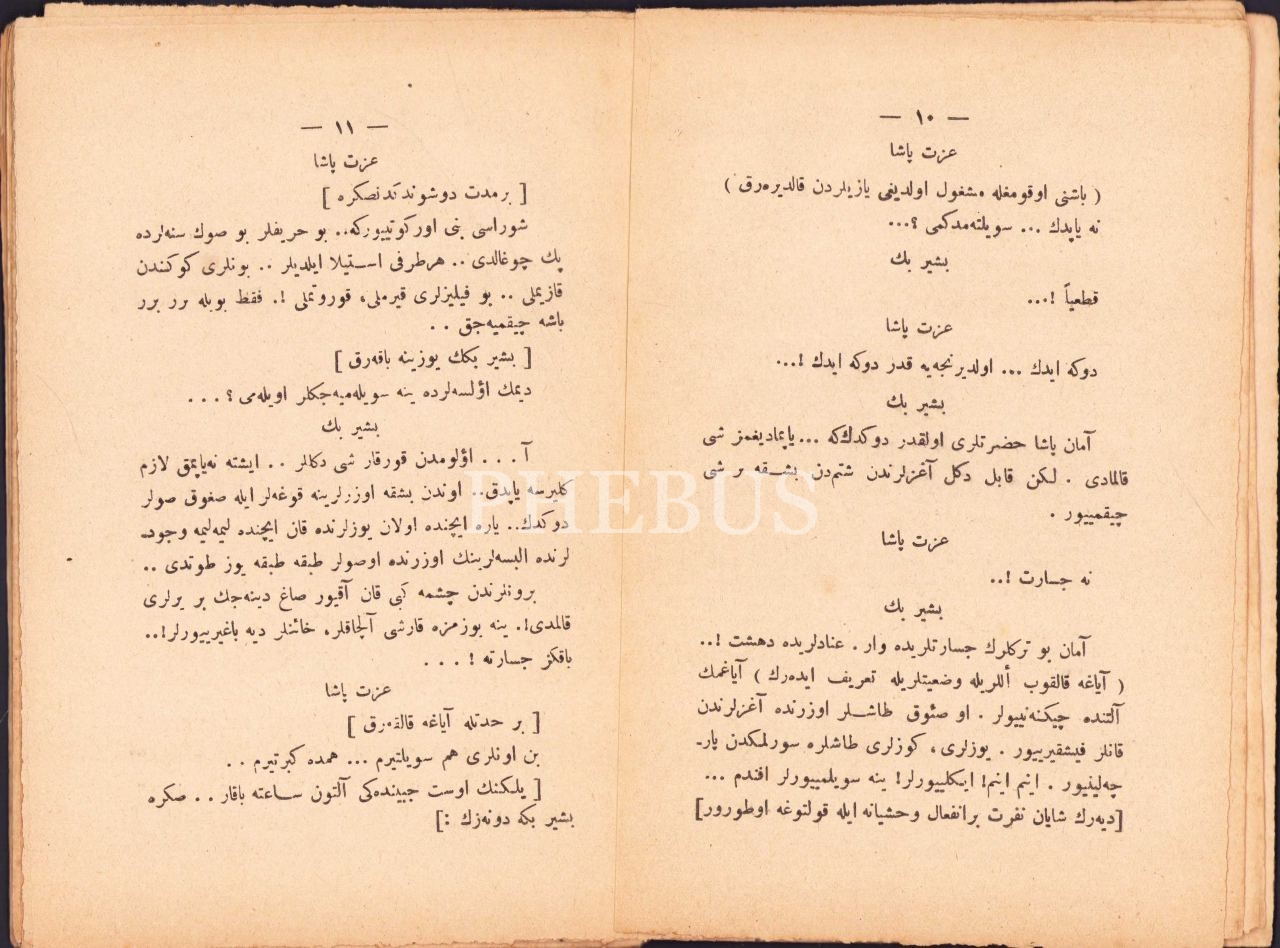 — ١٠ —
عزت پاشا
( باشنی اوقومغله مشغول اولدیغی یازیلردن قالدیره‌رق )
نه یاپدك ... سویلته‌مدكمی ؟...
بشیر بك
قطعیاً !...
عزت پاشا
دوكه ایدك ... اولدیرنجه‌یه قدر دوكه ایدك !...
بشیر بك
آمان پاشا حضرتلری اولقدر دوكدك‌كه ... یاپمادیغمز شی
قالمادی . لكن قابل دكل آغزلرندن شتم‌دن بشـقه بر شی
چیقمییور .
عزت پاشا
نه جسارت !..
بشیر بك
آمان بو تركلرك جسارتلریده وار . عنادلریده دهشت !..
( آیاغه قالقوب أللریله وضعیتلریله تعریف ایده‌رك ) آیاغمك
آلتنده چیكنه‌نییولر . او صئوق طاشـلر اوزرنده آغزلرندن
قانلر فیشقیرییور . یوزلری، كوزلری طاشلره سورلمكدن پار-
چه‌لینیور . اینم اینم! اینكلییورلر! ینه سویلمییورلر افندم ...
[دیه‌رك شایان نفرت برانفعال وحشیانه ایله قولتوغه اوطورور]
— ١١ —
عزت پاشا
[ برمدت دوشوندكدنصكره ]
شوراسی بنی اوركوتییوركه.. بو حریفلر بو صوك سنه‌لرده
پك چوغالدی .. هرطرفی اسـتیلا ایلدیلر .. بونلری كوكندن
قازیملی .. بو فیلیزلری قیرملی، قوروتملی !. فقط بویله برر برر
باشه چیقمیه‌جق . .
[ بشیر بكك یوزینه باقه‌رق ]
دیمك اؤلسه‌لرده ینه سویله‌میه‌جكلر اویله‌می ؟ . . .
بشیر بك
آ . . . اؤلومدن قورقار شی دكللر .. ایشته نه‌یاپمق لازم
كلیرسه یاپدق.. اوندن بشقه اوزرلرینه قوغه‌لر ایله صغوق صولر
دوكدك.. یاره ایچنده اولان یوزلرنده قان ایچنده لیمه‌لیمه وجود-
لرنده البسه‌لرینك اوزرنده اوصولر طبقه طبقه یوز طوتدی ..
برونلرندن چشمه كبی قان آقیور صاغ دینه‌جك بر یرلری
قالمدی!. ینه یوزمزه قارشی آلچاقلر، خائنلر دیه باغیرییورلر!..
باقكز جسارته ! . . .
عزت پاشا
[ بر حدتله آیاغه قالقه‌رق ]
بن اونلری هم سویلتیرم ... همده كبرتیرم . .
[ یلكنك اوست جبینده‌كی آلتون سـاعته باقار . . صكره
بشیر بكه دونه‌رك :]
PHEBUS